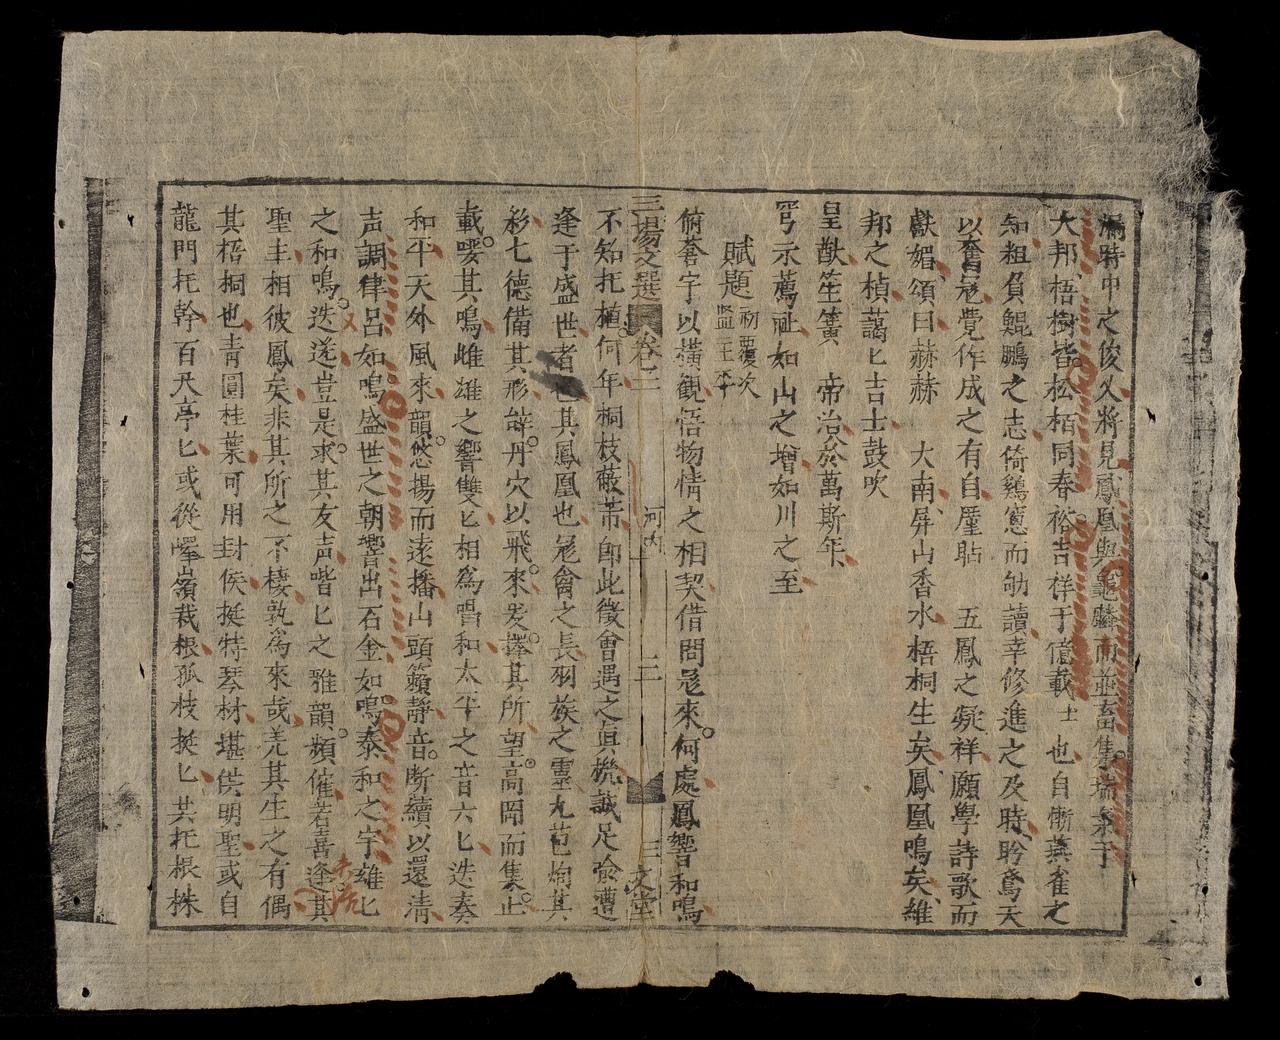 滿時中之俊乂將見鳳凰與龜麟而並畜集瑞采于
大邦梧樹皆松栢同春裕吉祥于億載士也自慚燕雀之
知粗負鯤鵬之志倚鷄窓而劬讀幸修進之及時盻鳶天
以奮冠覺作成之有自屢貼 五鳳之凝祥願學詩歌而
獻媚頌曰赫赫 大南屏山香水梧桐生矣鳳凰鳴矣維
邦之楨藹匕吉士鼓吹
皇猷笙簧 帝治於萬斯年
穹示薦祉如山之增如川之至
賦題 初覆次
俯蒼宇以橫觀悟物情之相契借問冠來何處鳳響和鳴
三場文選 卷二 河內 二 三文堂
不知托植何年桐枝蔽芾即此徵會遇之眞機誠足驗遭
逢于盛世者也其鳳凰也冠禽之長羽族之靈九苞炳其
彩七德備其形辞丹穴以飛來爰擇其所望高岡而集止
載嚶其鳴雌雄之響雙匕相爲唱和太平之音六匕迭奏
和平天外風來韻悠揚而遠播山頭籟靜音断續以還清
声調律呂如鳴盛世之朝響出石金如鳴泰和之宇雄匕
之和鳴迭送豈是求其友声喈匕之雅韻頻催若喜逢其
聖主相彼鳳矣非其所之不棲孰爲來哉羌其生之有偶
其梧桐也青圓桂葉可用封侯挺特琴材堪供明聖或自
龍門托幹百尺亭匕或從嶧嶺栽根孤枝挺匕其托根株